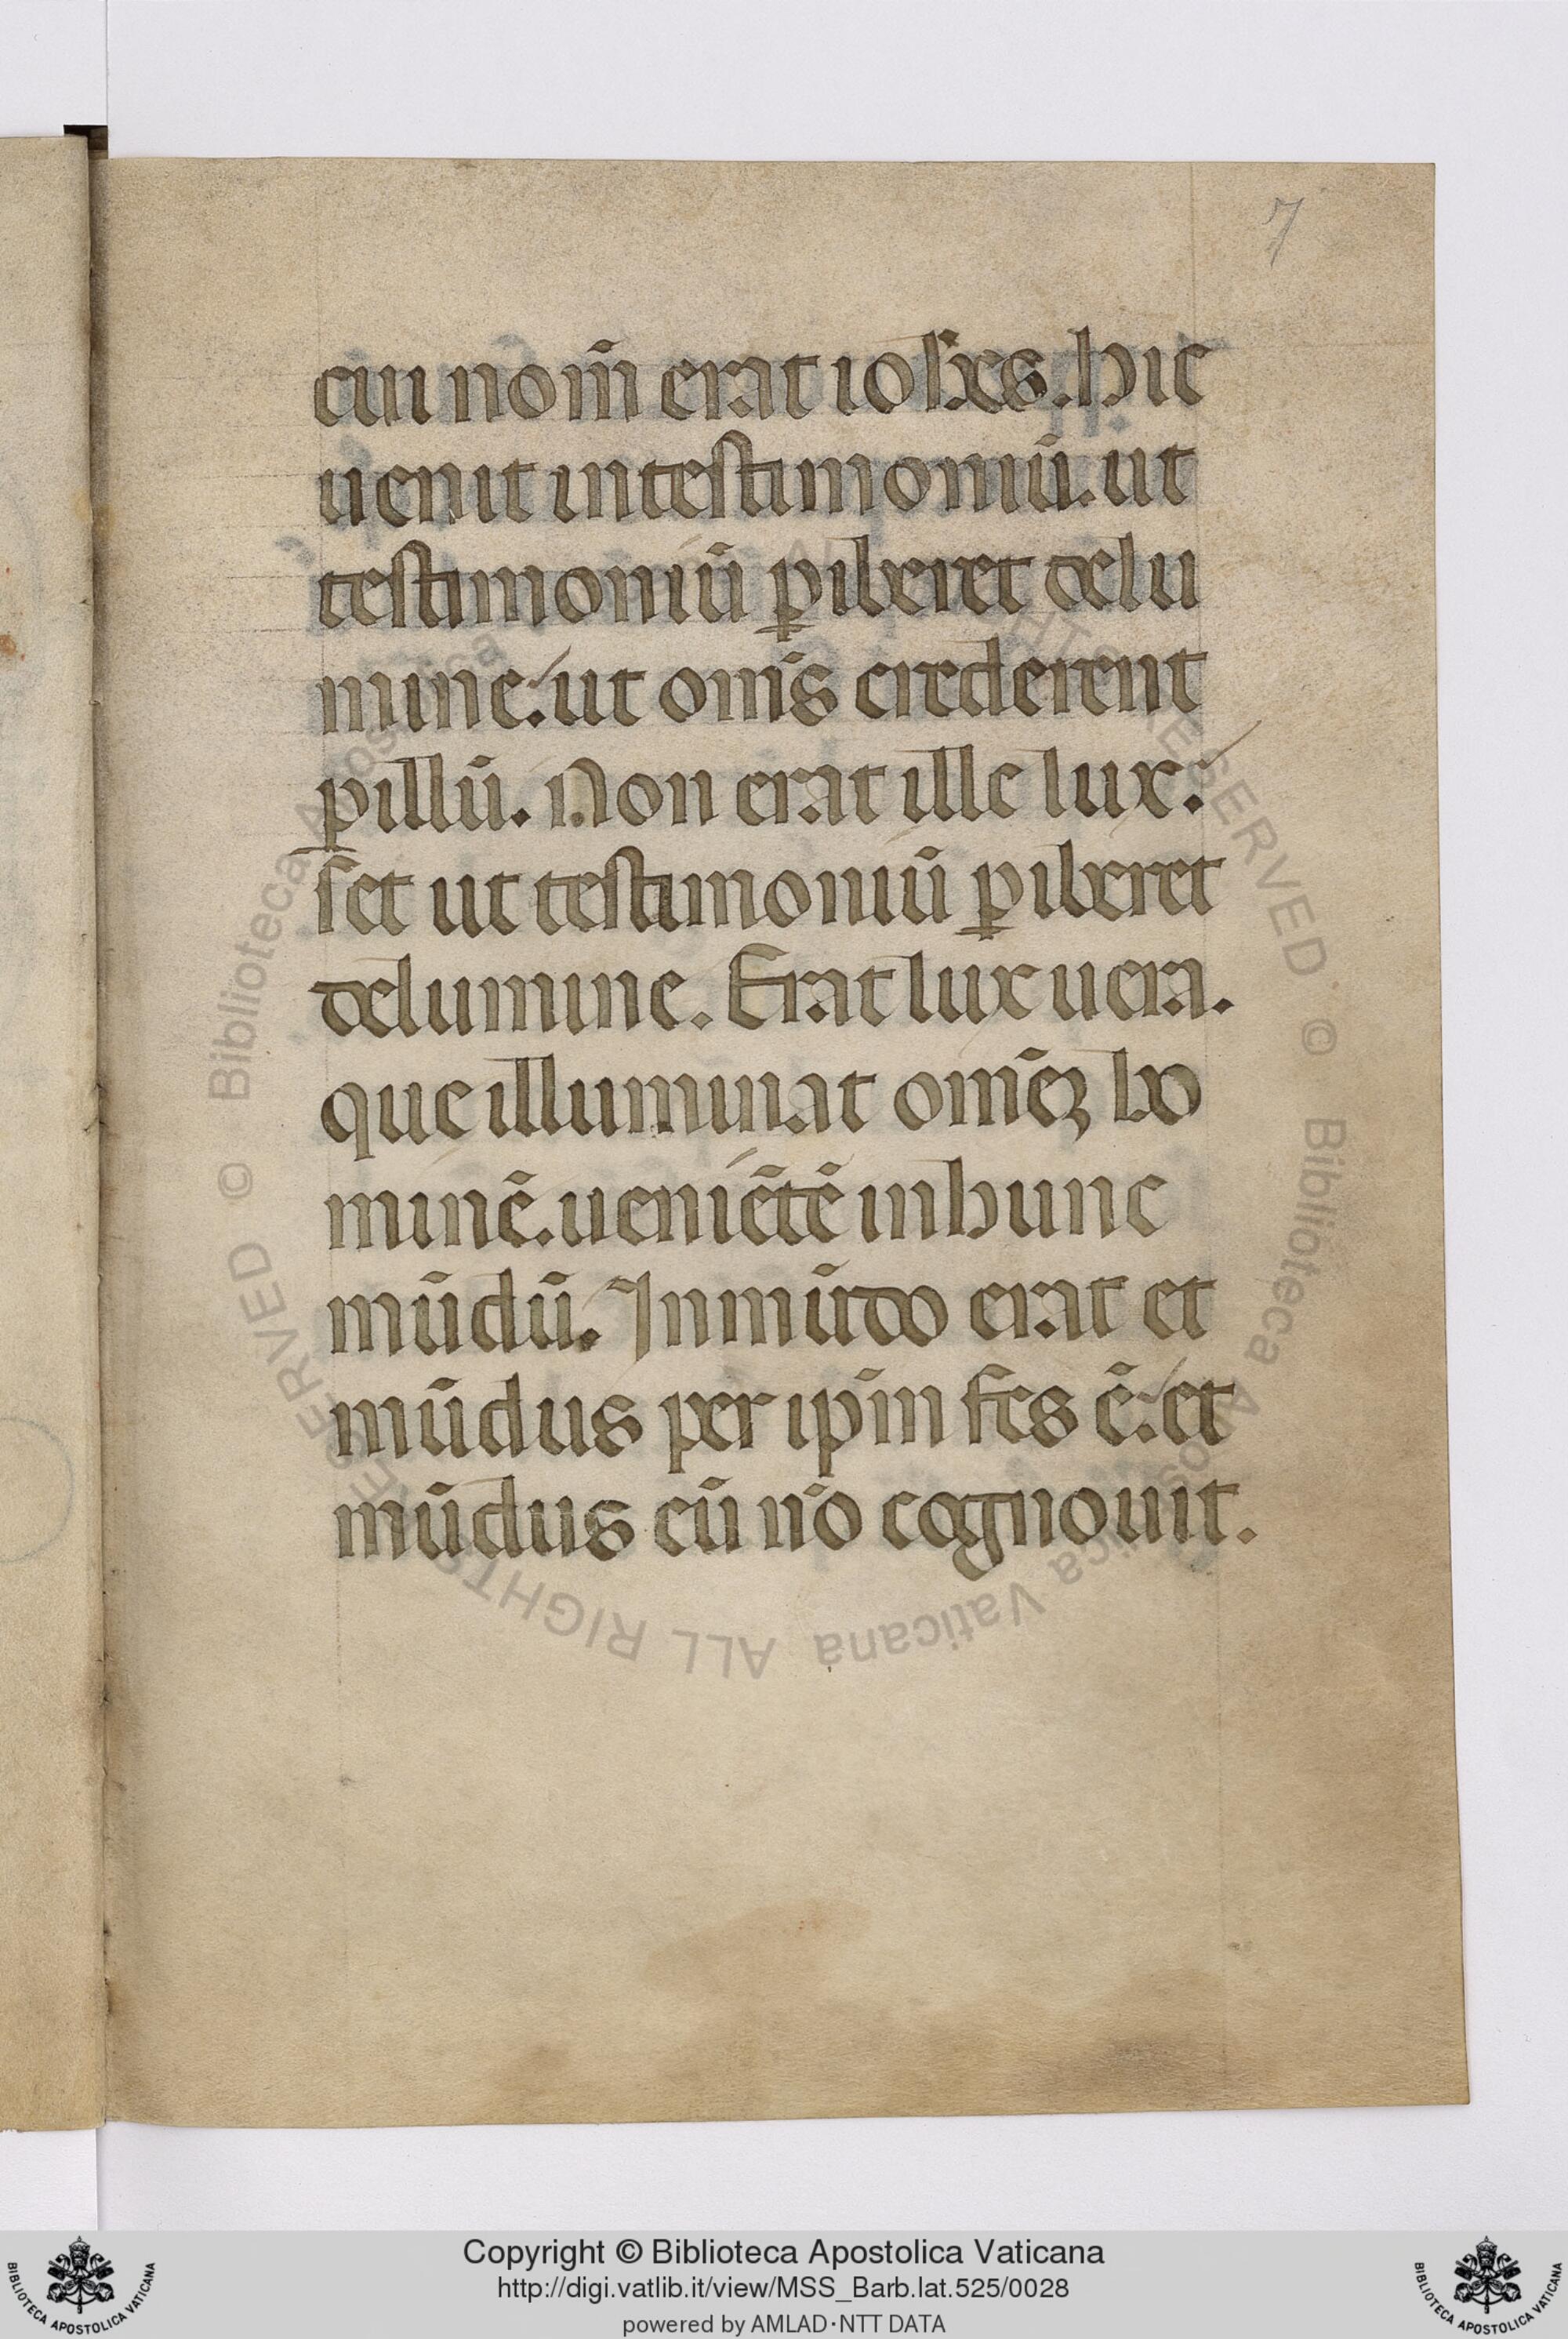 7
cui nom̄ erat iohes. hic
uenit intestimoniū. ut
testimoniū ꝑiberet delu
mine: ut om̄s crederent
ꝑillū. Non erat ille lux:
set ut testimoniū ꝑiberet
delumine. Erat lux uera.
que illuminat om̄eꝫ ho
minē. ueniētē inhunc
mūdū. Inmūdo erat et
mūdus per ip̄m fc̄s ē: et
mūdus eū nō cognouit.
© Biblioteca Apostolica Vaticana ALL RIGHTS RESERVED © Biblioteca Apostolica Vaticana ALL RIGHTS RESERVED
Copyright © Biblioteca Apostolica Vaticana
http://digi.vatlib.it/view/MSS_Barb.lat.525/0028
powered by AMLAD·NTT DATA
BIBLIOTECA APOSTOLICA VATICANA
BIBLIOTECA APOSTOLICA VATICANA